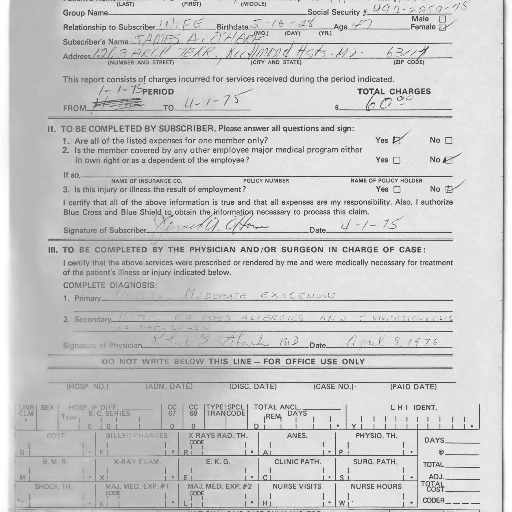 (LAST) (FIRST) (MIDDLE)
Group Name Social Security #
Relationship to Subscriber WIFE Birthdate 5-16-28 Age 47 Male □ Female
(MO.) (DAY) (YR.)
Subscriber's Name JAMES A. O'HARE
Address TERR, Hgts. Mo. 63114
(NUMBER AND STREET) (CITY AND STATE) (ZIP CODE)
This report consists of charges incurred for services received during the period indicated.
1-1-75 PERIOD TOTAL CHARGES
FROM TO 4-1-75 $ 60.00
II. TO BE COMPLETED BY SUBSCRIBER. Please answer all questions and sign:
1. Are all of the listed expenses for one member only? Yes ☑ No □
2. Is the member covered by any other employee major medical program either
in own right or as a dependent of the employee? Yes □ No ☑
If so,
NAME OF INSURANCE CO. POLICY NUMBER NAME OF POLICY HOLDER
3. Is this injury or illness the result of employment? Yes □ No ☑
I certify that all of the above information is true and that all expenses are my responsibility. Also, I authorize
Blue Cross and Blue Shield to obtain the information necessary to process this claim.
Signature of Subscriber Date 4-1-75
III. TO BE COMPLETED BY THE PHYSICIAN AND/OR SURGEON IN CHARGE OF CASE:
I certify that the above services were prescribed or rendered by me and were medically necessary for treatment
of the patient's illness or injury indicated below.
COMPLETE DIAGNOSIS:
1. Primary MODERATE
2. Secondary FOOD ALLERGIES AND
OF THE
Signature of Physician MD Date April 9, 1976
DO NOT WRITE BELOW THIS LINE — FOR OFFICE USE ONLY
(HOSP. NO.) (ADM. DATE) (DISC. DATE) (CASE NO.) (PAID DATE)
UNR CLM SEX HOSP. IF DIFF. CC CC TYPE SPCL TOTAL ANCL. L H I IDENT.
Type B.C. SERIES 67 68 TRAN CODE REM. DAYS
COST BILLED CHARGES X RAYS RAD. TH. ANES. PHYSIO. TH. DAYS
CODE
B. M. R. X-RAY EXAM. E. K. G. CLINIC PATH. SURG. PATH. TOTAL
ADJ.
SHOCK TH. MAJ. MED. EXP. #1 MAJ. MED. EXP. #2 NURSE VISITS NURSE HOURS TOTAL COST
CODE CODE CODER